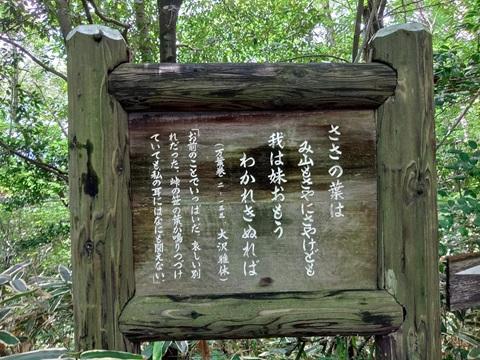 ささの葉は
み山もさやにさやけども
我は妹おもう
わかれきぬれば
(万葉巻 二‐一三三 大沢雅休)
「お前のことでいっぱいだ、哀しい別
れだった、峠の笹の葉が鳴りつづけ
ていても私の耳にはなにも聞えない」